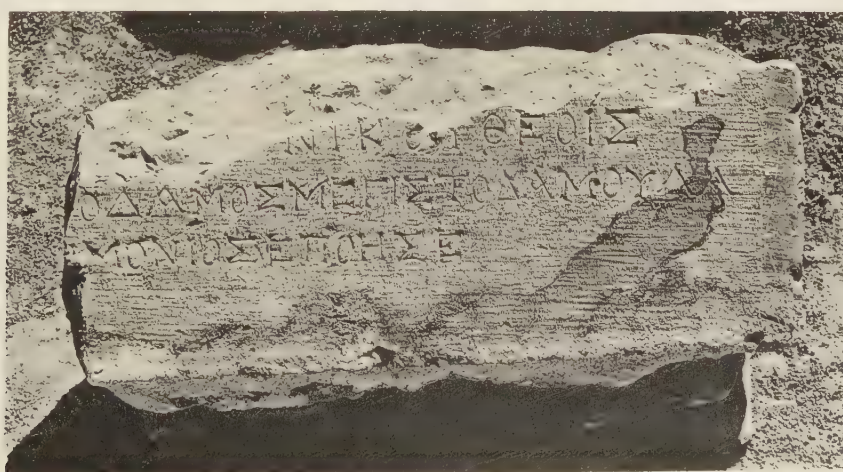 ΘΕΟΙΣ
ΟΔΑΜΟΣΜΕΓΙΣΤΟΔΑΜΟΥΛΑ
ΜΟΝΙΟΣΕΠΟΗΣΕ